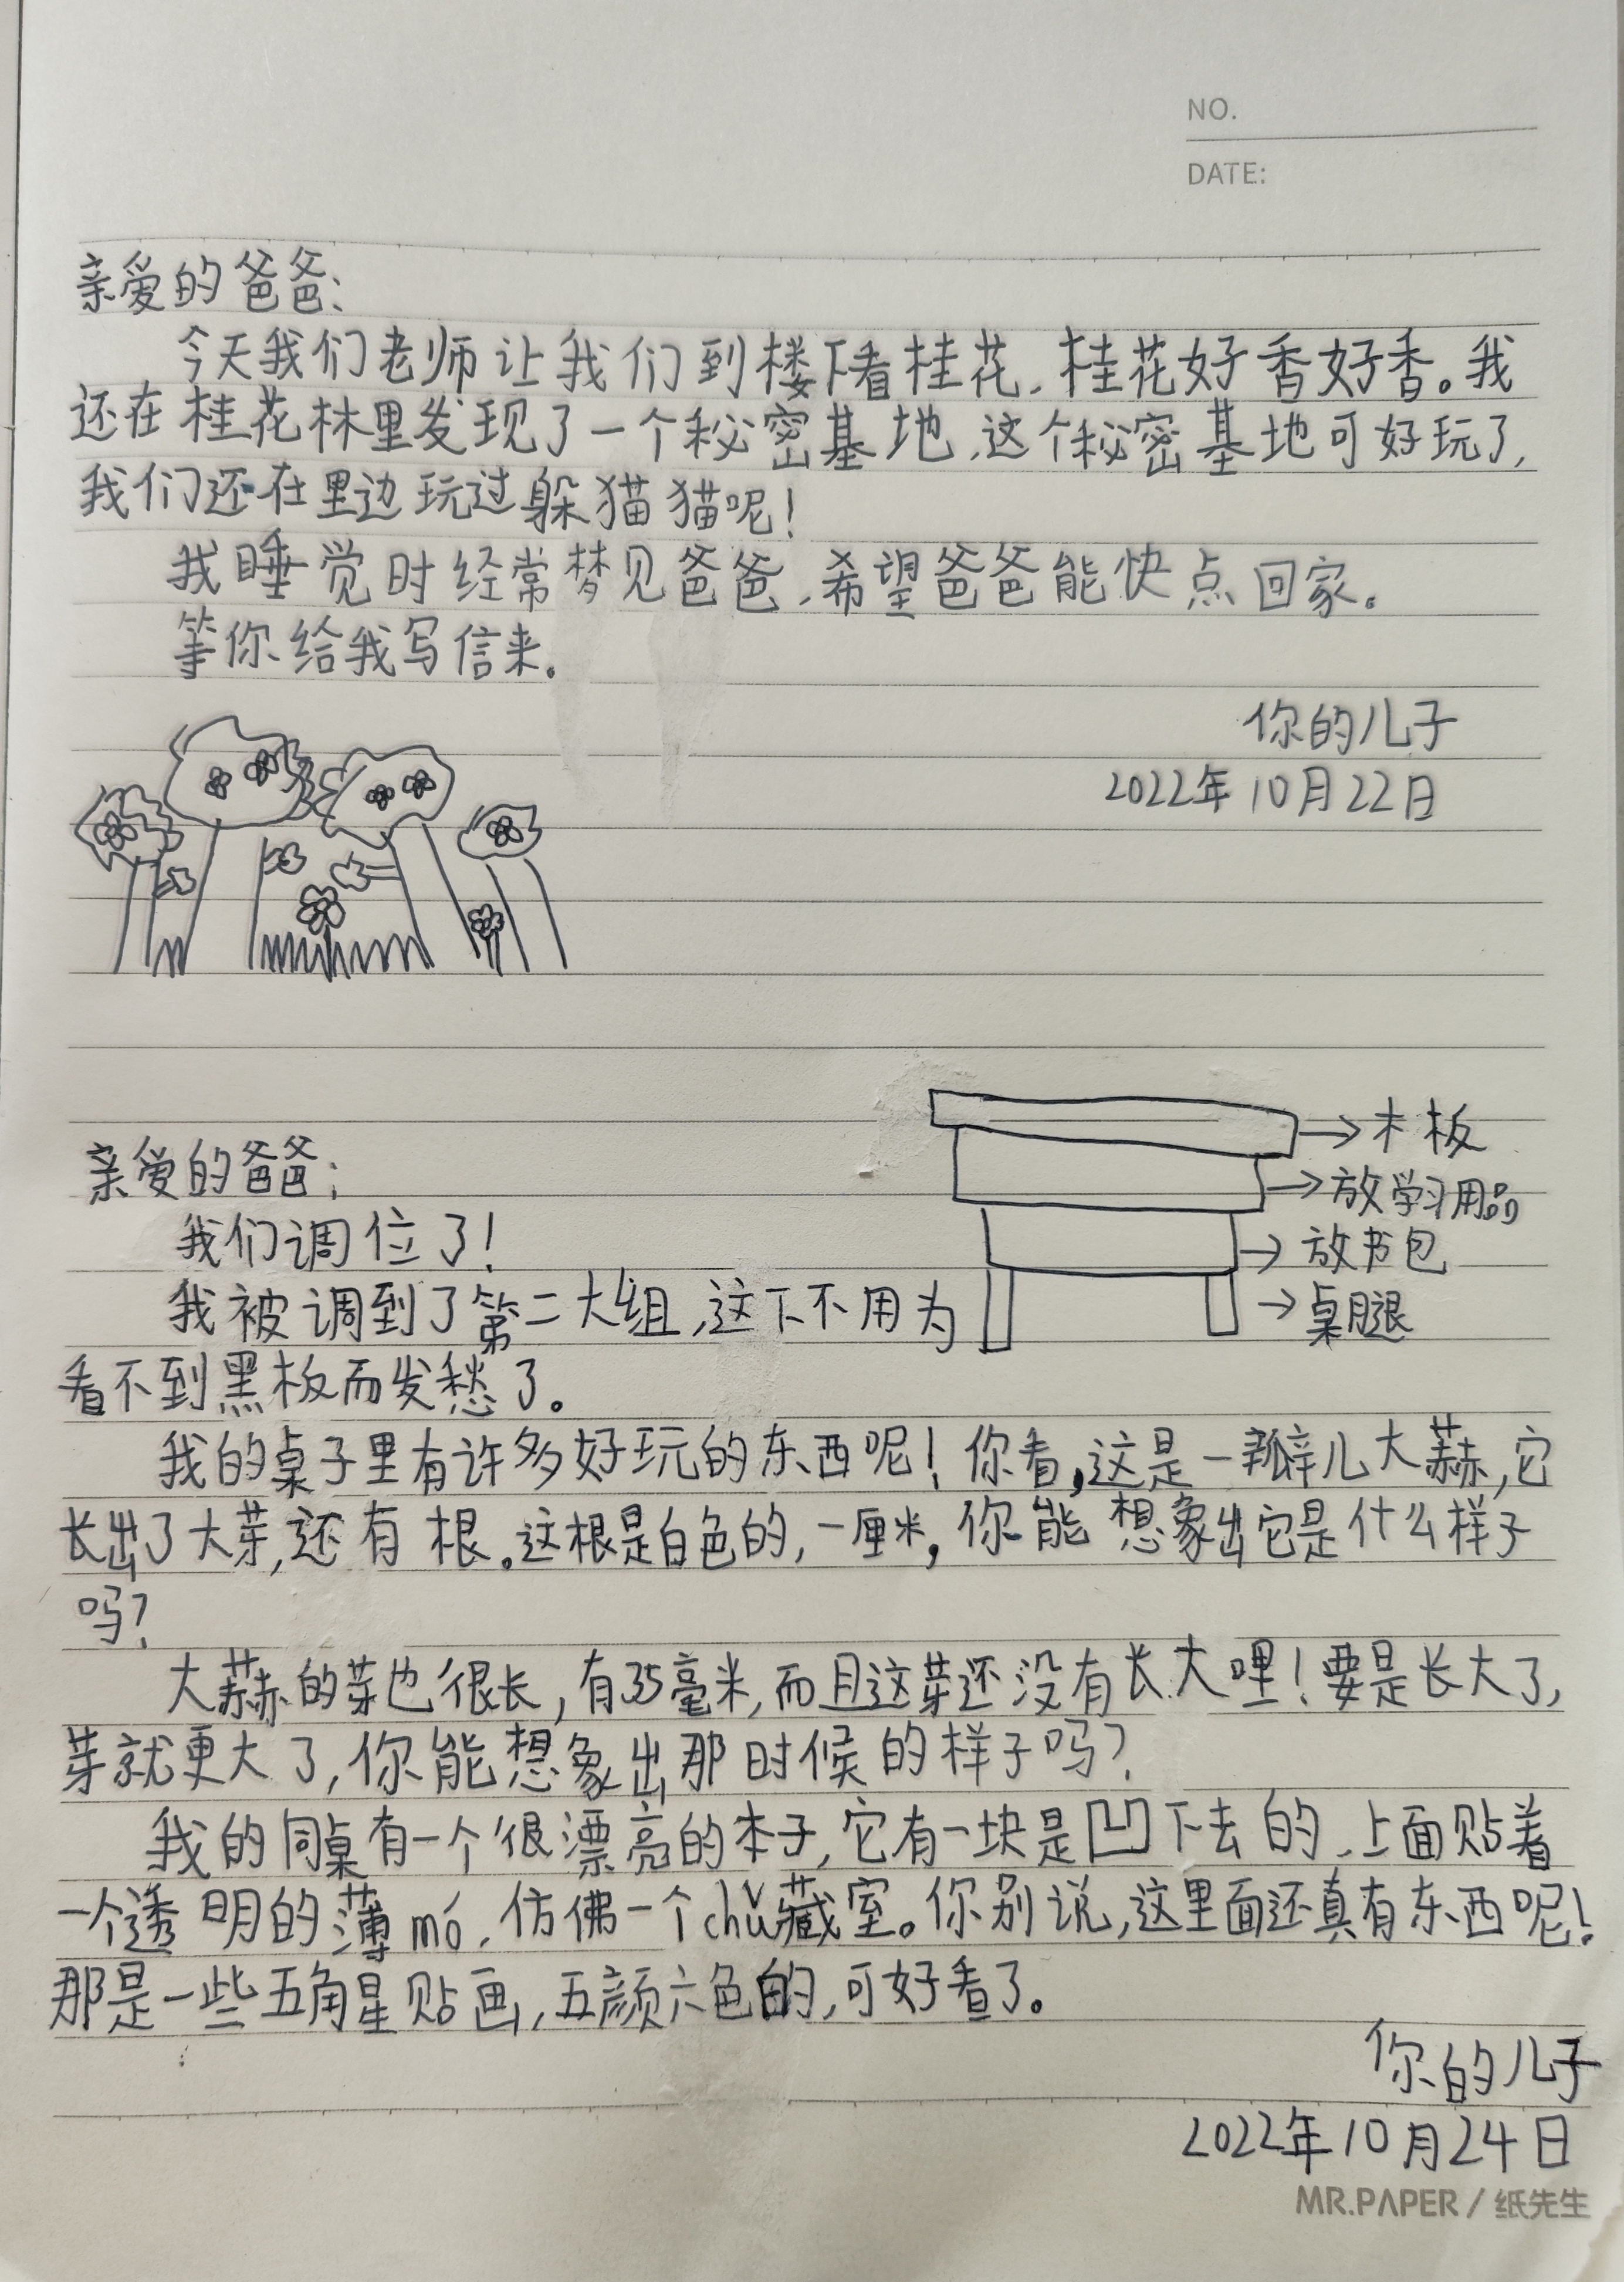 NO.
DATE:
亲爱的爸爸:
今天我们老师让我们到楼下看桂花,桂花好香好香。我
还在桂花林里发现了一个秘密基地,这个秘密基地可好玩了,
我们还在里边玩过躲猫猫呢!
我睡觉时经常梦见爸爸,希望爸爸能快点回家。
等你给我写信来。
你的儿子
2022年10月22日
木板
亲爱的爸爸:
放学习用品
我们调位了!
放书包
我被调到了第二大组,这下不用为
桌腿
看不到黑板而发愁了。
我的桌子里有许多好玩的东西呢!你看,这是一瓣儿大蒜,它
长出了大芽,还有根。这根是白色的,一厘米,你能想象出它是什么样子
吗?
大蒜的芽也很长,有35毫米,而且这芽还没有长大哩!要是长大了,
芽就更大了,你能想象出那时候的样子吗?
我的同桌有一个很漂亮的本子,它有一块是凹下去的,上面贴着
一个透明的薄mó,仿佛一个chǔ藏室。你别说,这里面还真有东西呢!
那是一些五角星贴画,五颜六色的,可好看了。
你的儿子
2022年10月24日
MR.PAPER / 纸先生